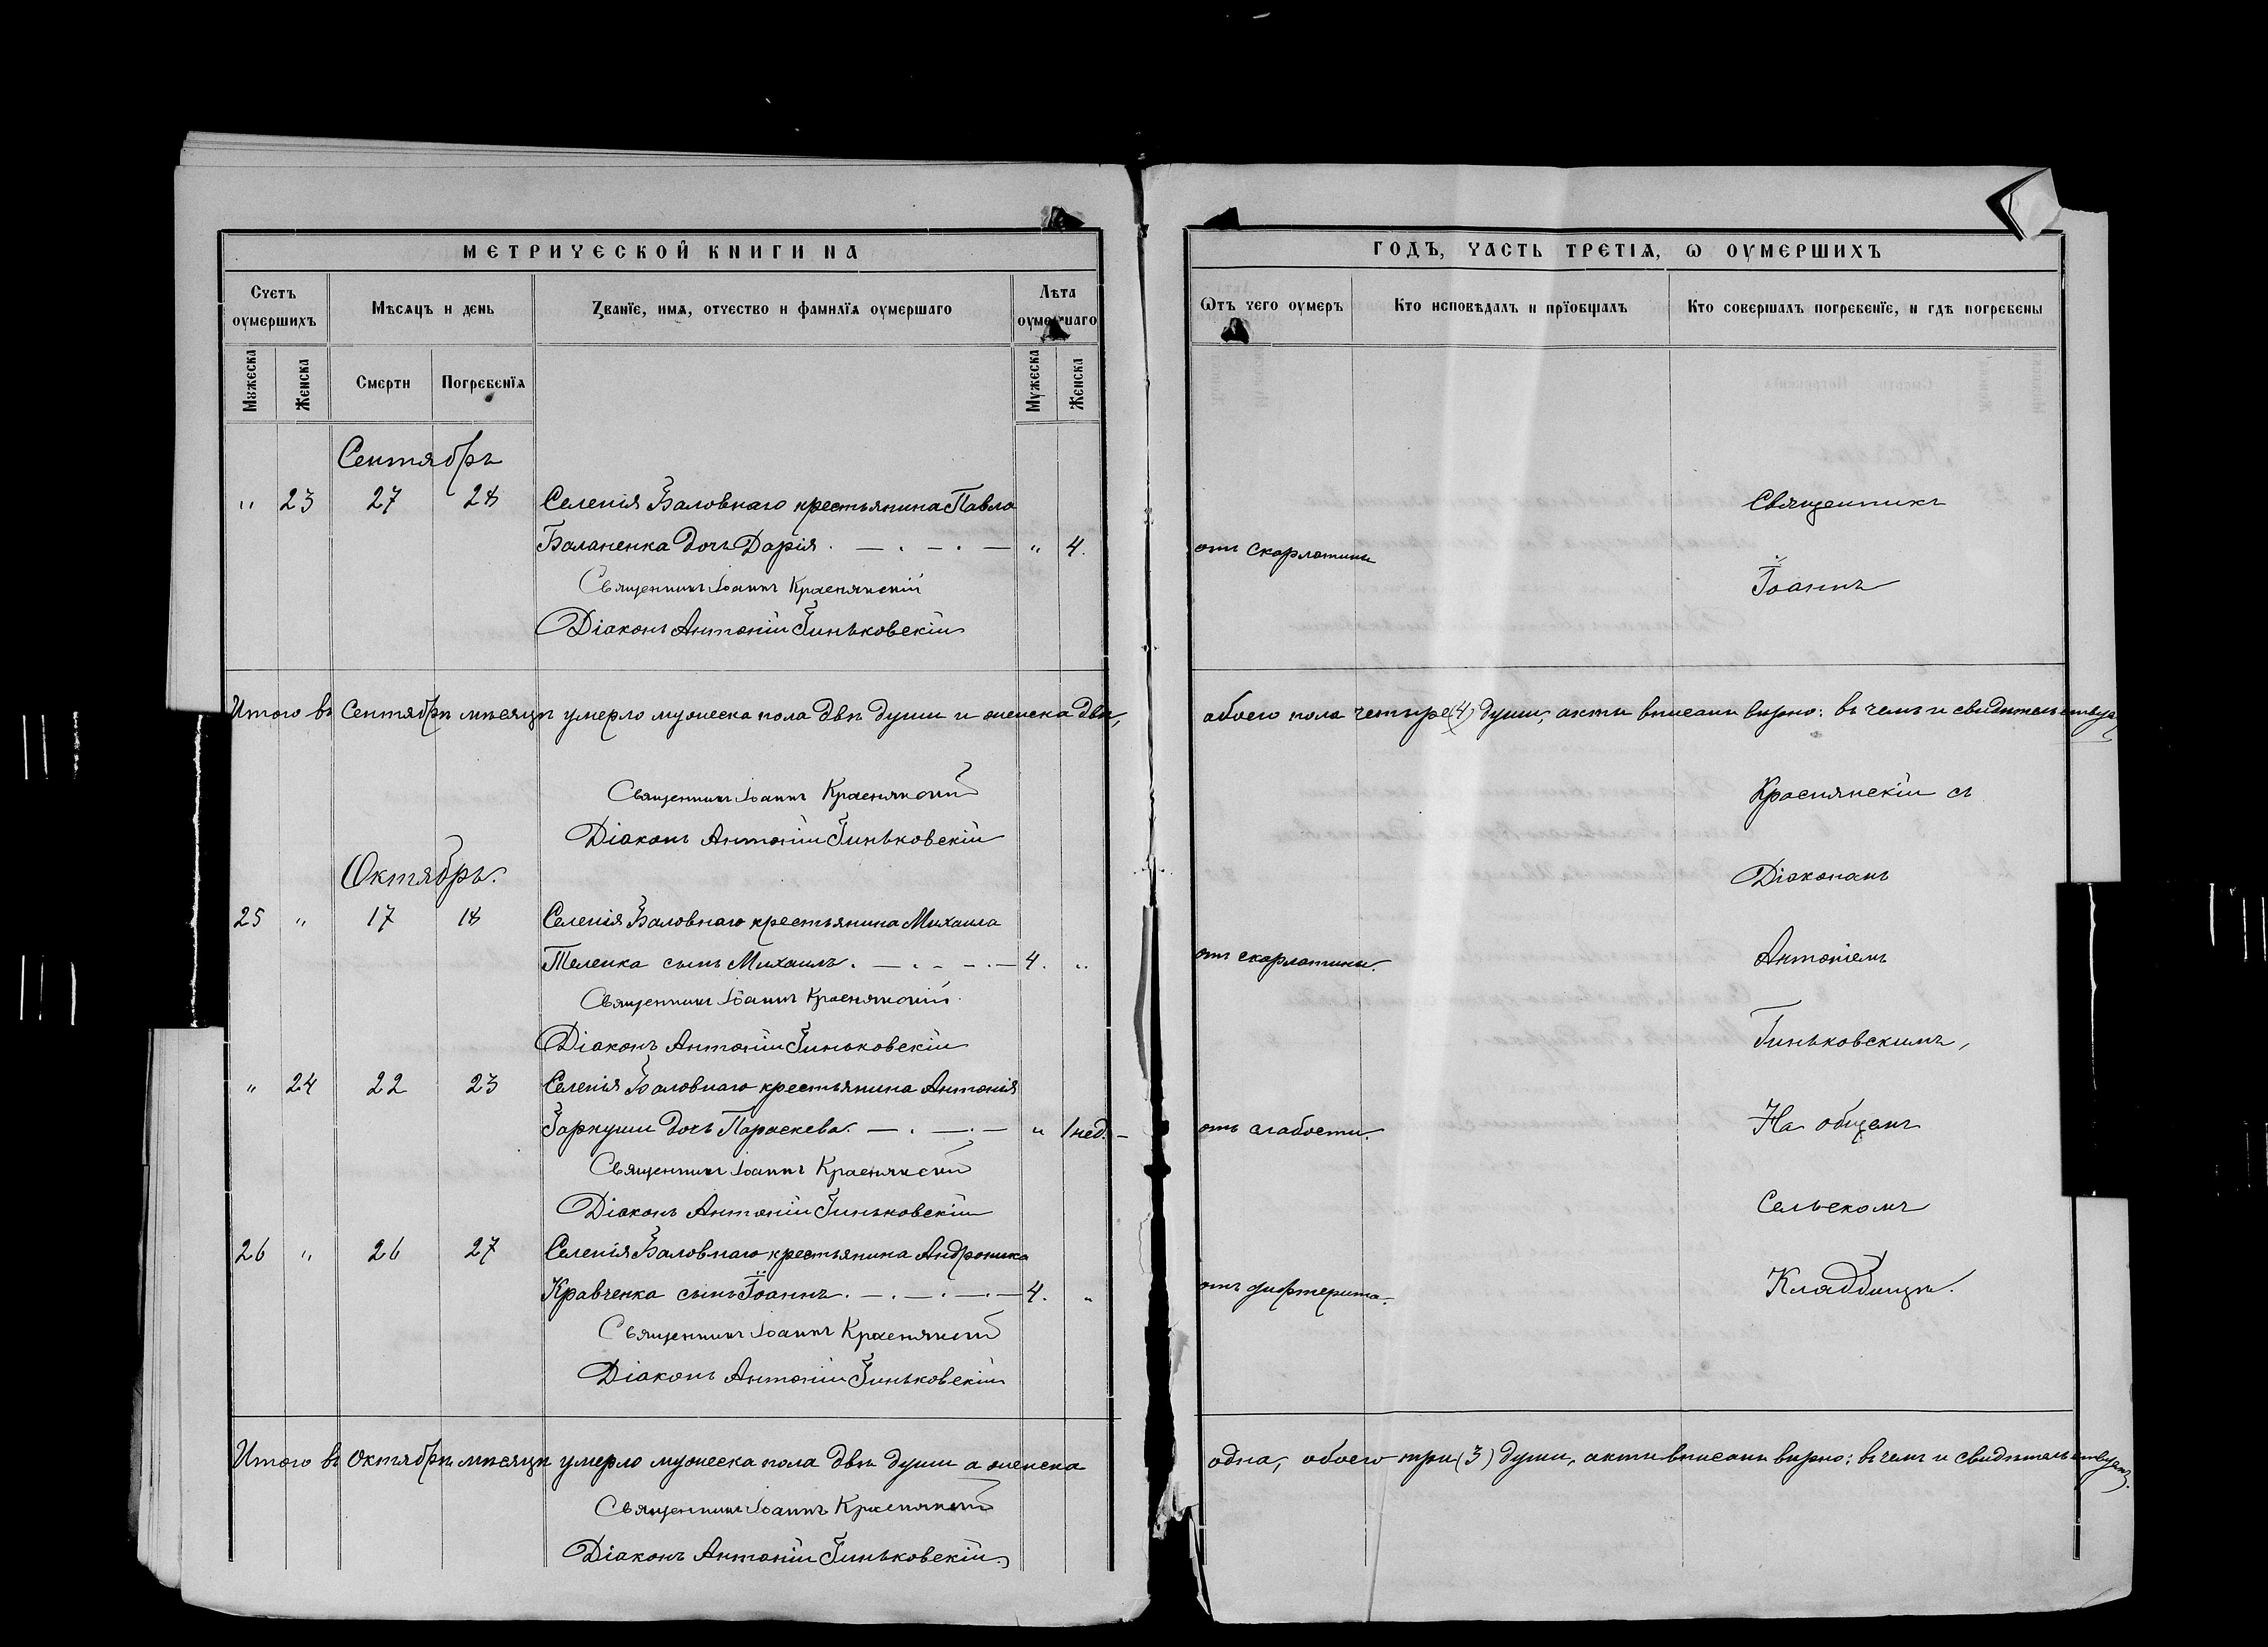 МЕТРИЧЕСКОЙ КНИГИ НА
Счетъ ѹмершихъ
Мѣсѧцъ и день
Званїе, имѧ, отчество и фамилїѧ ѹмершаго
Лѣта ѹмершаго
Мѹжеска
Женска
Смерти
Погребенїѧ
Мѹжеска
Женска
Сентябрь
" 23 27 28 Селенія Баловнаго крестьянина Павла
Баланенка дочь Дарія . — . — . — " 4.
Священникъ Іоаннъ Краснянскій
Діаконъ Антоній Гиньковскій
Итого въ Сентябрѣ мѣсяцѣ умерло мужеска пола двѣ души и женска двѣ,
Священникъ Іоаннъ Краснянскій
Діаконъ Антоній Гиньковскій
Октябрь.
25 " 17 18 Селенія Баловнаго крестьянина Михаила
Теленка сынъ Михаилъ . — . — . — 4. "
Священникъ Іоаннъ Краснянскій
Діаконъ Антоній Гиньковскій
" 24 22 23 Селенія Баловнаго крестьянина Антонія
Гаркуши дочь Параскева. — . — . — " 1 нед. —
Священникъ Іоаннъ Краснянскій
Діаконъ Антоній Гиньковскій
26 " 26 27 Селенія Баловнаго крестьянина Андроника
Кравченка сынъ Іоаннъ . — . — . — . — 4. "
Священникъ Іоаннъ Краснянскій
Діаконъ Антоній Гиньковскій
Итого въ Октябрѣ мѣсяцѣ умерло мужеска пола двѣ души а женска
Священникъ Іоаннъ Краснянскій
Діаконъ Антоній Гиньковскій
ГОДЪ, ЧАСТЬ ТРЕТІѦ, Ѡ ѸМЕРШИХЪ
Ѿтъ чего ѹмеръ
Кто исповѣдалъ и прїобщалъ
Кто совершалъ погребенїе, и гдѣ погребены
Священникъ
отъ скарлатины
Іоаннъ
обоего пола четыре (4) души, акты вписаны вѣрно: въ чемъ и свидѣтельствуемъ
Краснянскій съ
Діакономъ
отъ скарлатины.
Антоніемъ
Гиньковскимъ,
отъ слабости.
На общемъ
Сельскомъ
отъ дифтерита.
Кладбищѣ.
одна, обоего три (3) души, акты вписаны вѣрно; въ чемъ и свидѣтельствуемъ